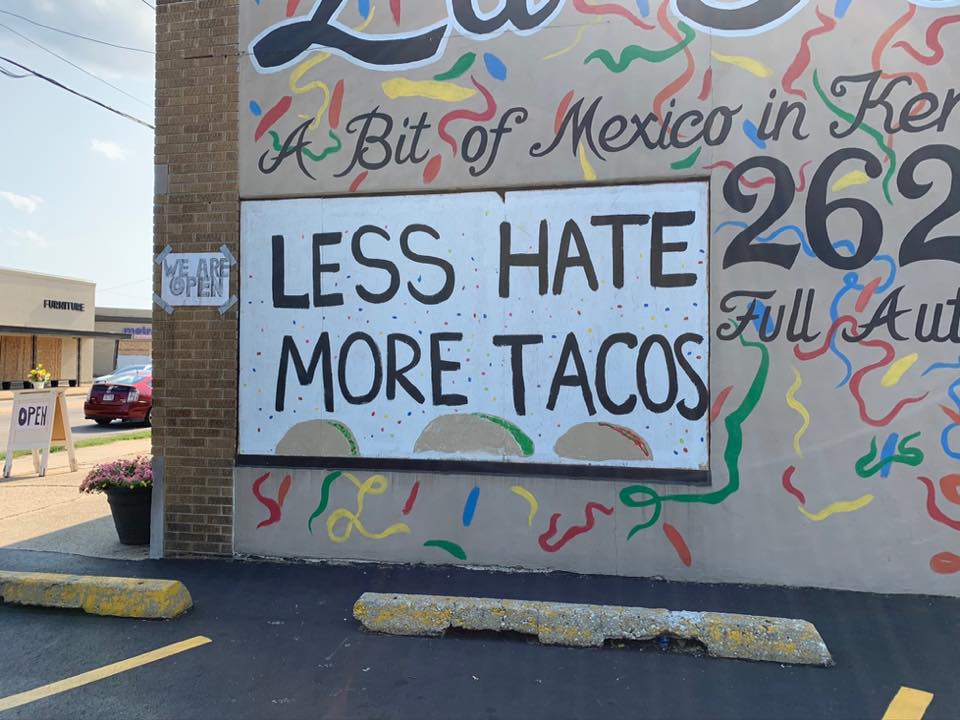 A Bit of Mexico in Ken
262
Full Aut
LESS HATE
MORE TACOS
WE ARE
OPEN
FURNITURE
metro
OPEN